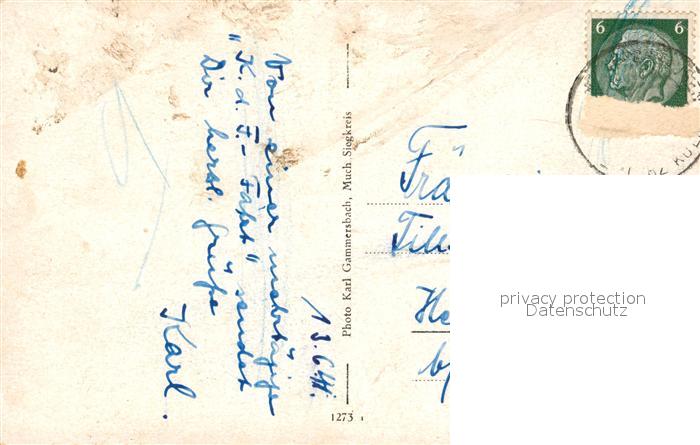 Von einer mehrtägigen
"K. d. F.- Fahrt" sendet
Dir herzl. Grüße
Karl.
13.6.41.
Photo Karl Gammersbach, Much, Siegkreis
1273
6 6
Frä
Till
He
privacy protection
Datenschutz